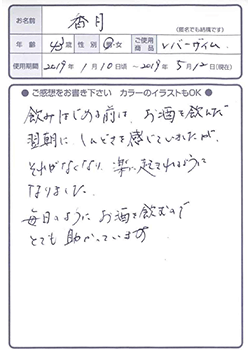 お名前 香月
(匿名でも結構です)
年齢 43歳 性別 男・女 ご使用商品 レバーヴィム
使用期間 2019年1月10日頃~2019年5月12日(現在)
● ご感想をお書き下さい カラーのイラストもOK ●
飲みはじめる前は、お酒を飲んだ
翌朝に、しんどさを感じていましたが、
それがなくなり、楽に起きれるように
なりました。
毎日のように、お酒を飲むので
とても助かっています